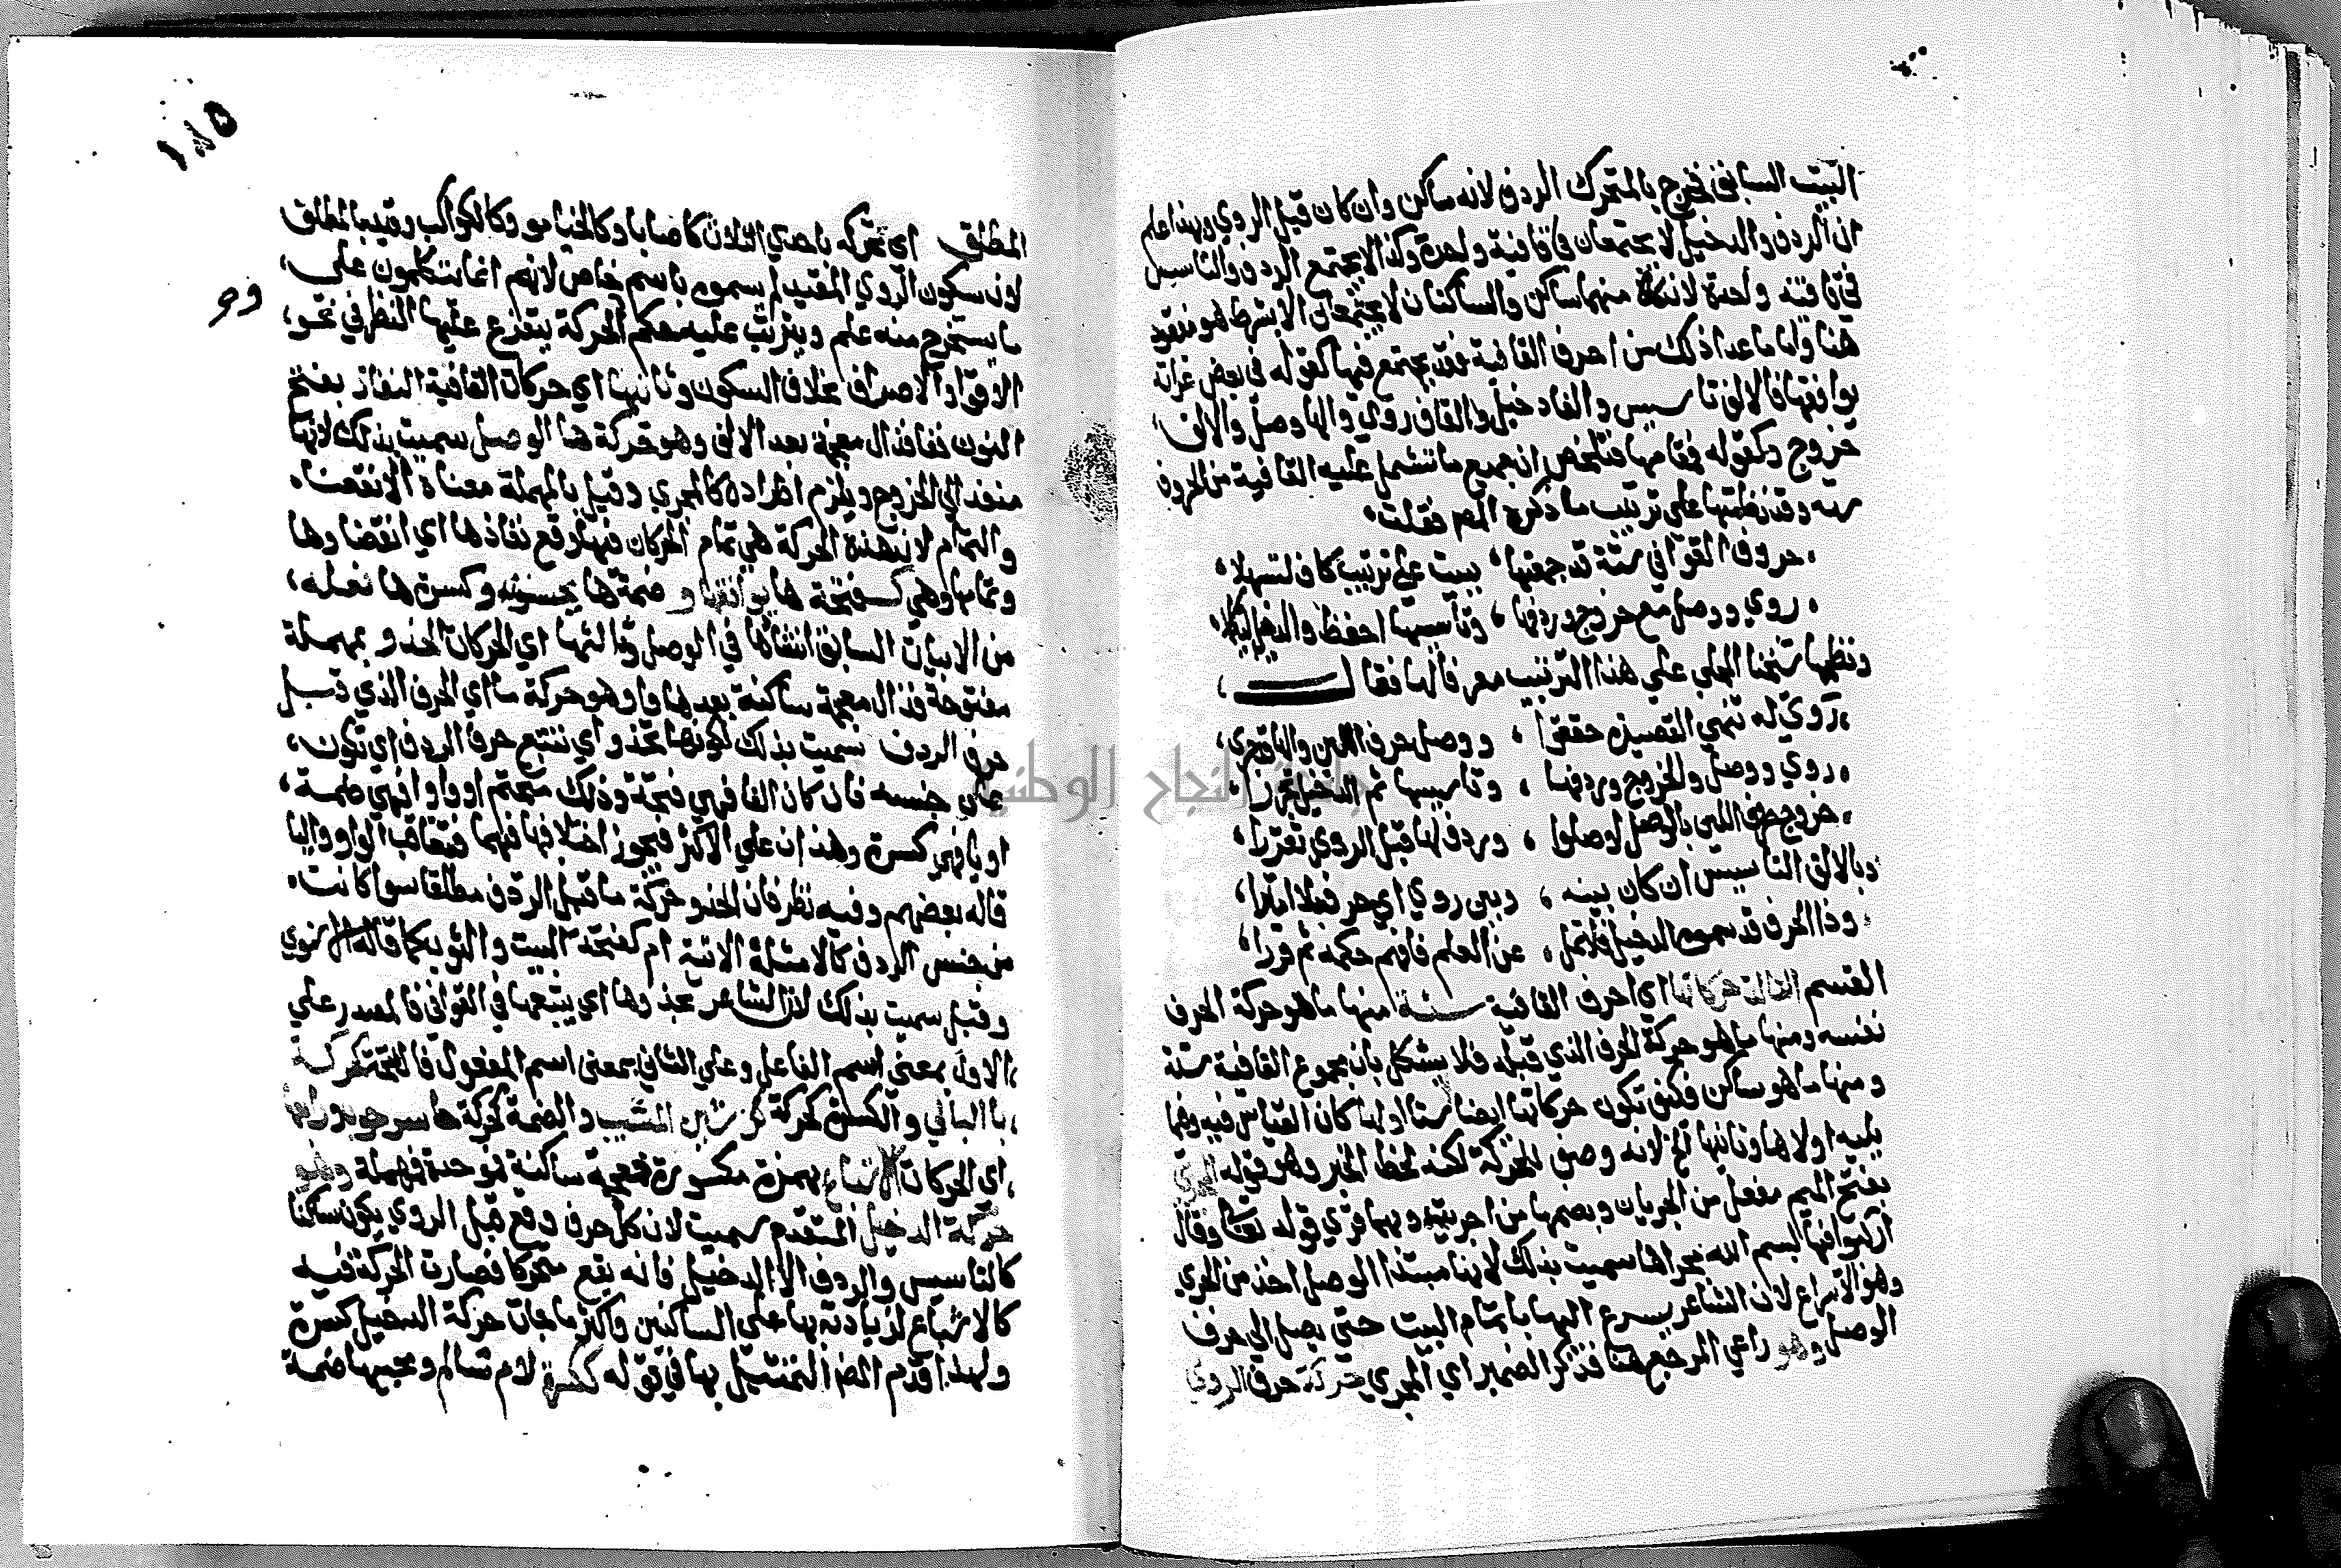 البيت السابق فخرج بالمتحرك الردف لانه ساكن وان كان قبل الروي وبهذا علم
ان الردف والدخيل لا يجتمعان في قافية واحدة وكذا لا يجتمع الردف والتاسيس
في قافية واحدة لان كلا منهما ساكن والساكنان لا يجتمعان الا بشرط هو مفقود
هنا واما ما عدا ذلك من احرف القافية فقد يجتمع فيها كقوله في بعض
يوافقها فالالف تاسيس والفا دخيل والقاف روي والها وصل والالف
خروج وكقوله فمقامها فتلخص ان جميع ما تشتمل عليه القافية من الحروف
ستة وقد نظمتها على ترتيب ما ذكره المص فقلت
حروف القوافي ستة قد جمعتها ببيت على ترتيب كاف لتسهلا
روي ووصل مع خروج وردفها وتاسيسها احفظ والدخيل
ونظمها شيخنا على هذا الترتيب معرفا لها فقال
روي له تنمي القصيدة حققرا ووصل حرف اللين والها
روي ووصل والخروج وردفها وتاسيسها ثم الدخيل
خروج حرف اللين بالوصل اوصلوا وردف لها قبل الروي تقررا
وبالالف التاسيس ان كان بينه وبين روي اي حرف
وذا الحرف قد سموه الدخيل فلا تمل عن العلم فافهم حكمه ثم قررا
القسم الثالث حركاتها اي احرف القافية ستة منها ما هو حركة الحرف
نفسه ومنها ما هو حركة الحرف الذي قبله فلا يشكل بان مجموع القافية ستة
ومنها ما هو ساكن فكيف تكون حركاتها ايضا ستا اولها كان القياس فيه وفيما
يليه اولاها وثانيتها الخ لانه وصف للحركة لكنه لحظ الخبر وهو قوله المجري
بفتح الميم مفعل من الجريان وبضمها من اجريته وبهما قري قوله تعالى وقال
اركبوا فيها بسم الله مجراها سميت بذلك لانها مبتدا الوصل اخذ من الجري
وهو الاسراع لان الشاعر يسرع اليها باتمام البيت حتى يصل الى حرف
الوصل وهو راعي المرجع هنا فذكر الضمير اي المجري حركة حرف الروي
١٨٥
المطلق اي تحركه باحدي الثلاث كاصابا وكالخيامو وكالكواكب وقيد بالمطلق
لان سكون الروي المقيد لم يسموه باسم خاص لانهم انما يتكلمون على
ما يستخرج منه علم ويترتب عليه حكم الحركة يتفرع عليها النظر في نحو
الاقوا والاصراف بخلاف السكون وثانيها اي حركات القافية النفاذ بفتح
النون ففا فذال معجمة بعد الالف وهو حركة ها الوصل سميت بذلك لانها
منفذ الي الخروج ويلزم اطراده كالمجري وقيل بالمهملة معناه الانقضاء
والتمام لان هذه الحركة هي تمام الحركات فيها وقع نفاذها اي انقضاوها
وتمامها وهي كـفتحة ها يوافقها وضمة ها يحسنونه وكسرة ها نعله
من الابيات السابق انشادها في الوصل وثالثها اي الحركات الحذو بمهملة
مفتوحة فذال معجمة ساكنة بعدها واو وهو حركة ما اي الحرف الذي قبل
حرف الردف سميت بذلك لكونها تحذو اي تتبع حرف الردف اي تكون
على جنسه فان كان الفا فهي فتحة وذلك متحتم او واوا فهي ضمة
او يا فهي كسرة وهذان علي الاكثر فيجوز اختلافها فيهما فتعاقب الواو واليا
قاله بعضهم وفيه نظر فان الحذو حركة ما قبل الردف مطلقا سوا كانت
من جنس الردف كالامثلة الاتية ام كفتحة البيت والثوب كما قاله
وقيل سميت بذلك لان الشاعر يحذوها اي يتبعها في القوافي فالمصدر على
الاول بمعنى اسم الفاعل وعلي الثاني بمعنى اسم المفعول فالفتحة كحركة
با البالي والكسرة كحركة شين المشيب والضمة كحركة حا سرحوب ورابعها
اي الحركات الاشباع بهمزة مكسورة فمعجمة ساكنة فموحدة فمهملة وهو
حركة الدخيل المتقدم سميت لان كل حرف وقع قبل الروي يكون ساكنا
كالتاسيس والردف الا الدخيل فانه يقع متحركا فصارت الحركة فيه
كالاشباع لزيادته بها على الساكنين واكثر ما جات حركة الدخيل كسرة
ولهذا قدم المص التمثيل بها في قوله ككسرة لام سالم ومجيها ضمة
جامعة النجاح الوطنية